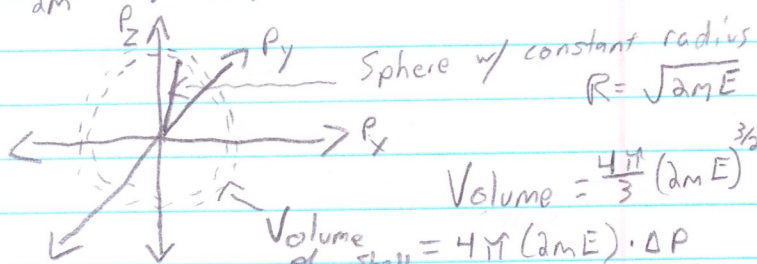 2m
Pz
Py
Sphere w/ constant radius
R = √2mE
Px
Volume = 4π/3 (2mE)^3/2
Volume
of shell = 4π(2mE)·ΔP